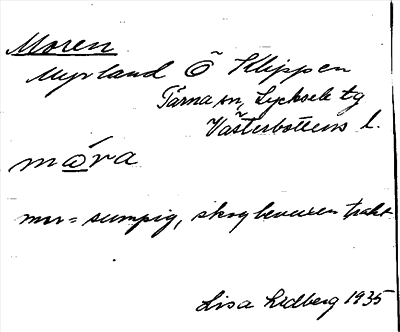 Moren
Myrland Õ Klippen
Tärna sn, Lycksele tg
Västerbottens l.
måra
mor = sumpig, skogbevuxen trakt
Lisa Lidberg 1935